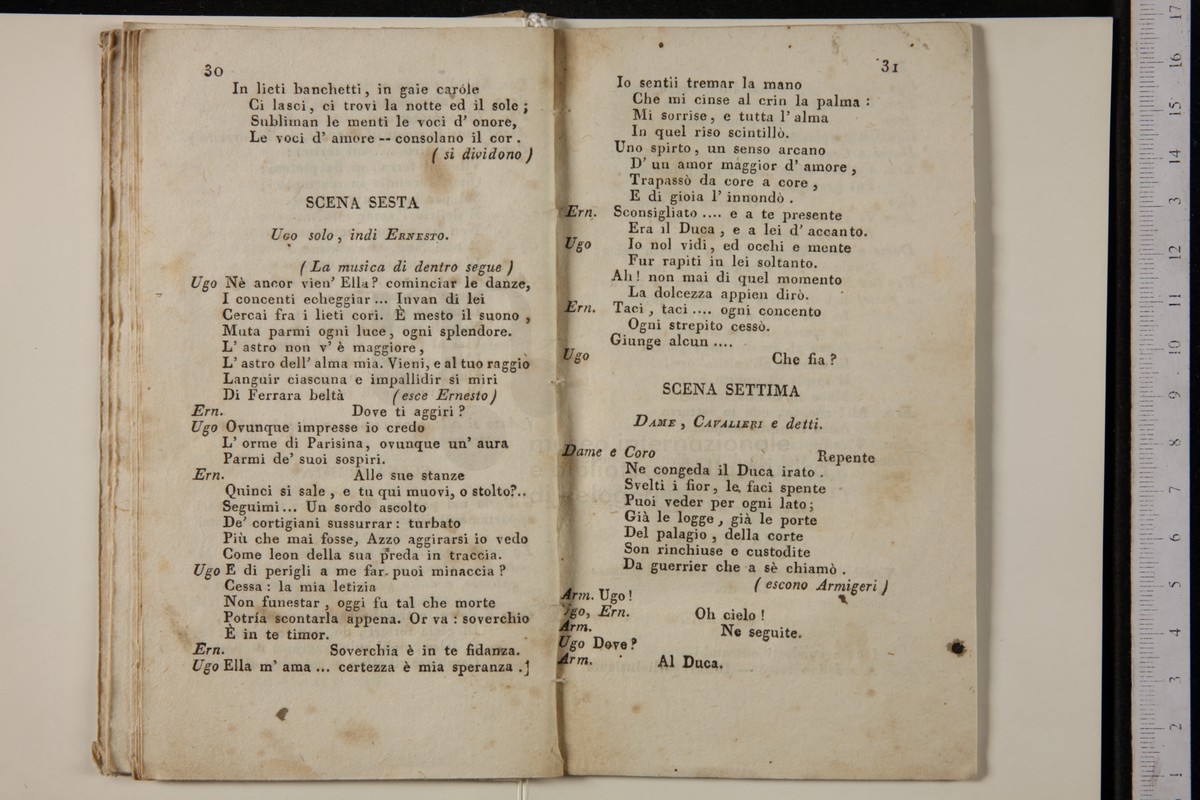 30
In lieti banchetti, in gaie caróle
Ci lasci, ci trovi la notte ed il sole;
Subliman le menti le voci d' onore,
Le voci d' amore -- consolano il cor.
( si dividono )
SCENA SESTA
UGO solo, indi ERNESTO.
( La musica di dentro segue )
Ugo Nè ancor vien' Ella? cominciar le danze,
I concenti echeggiar ... Invan di lei
Cercai fra i lieti cori. È mesto il suono,
Muta parmi ogni luce, ogni splendore.
L' astro non v' è maggiore,
L' astro dell' alma mia. Vieni, e al tuo raggio
Languir ciascuna e impallidir si miri
Di Ferrara beltà (esce Ernesto)
Ern. Dove ti aggiri?
Ugo Ovunque impresse io credo
L' orme di Parisina, ovunque un' aura
Parmi de' suoi sospiri.
Ern. Alle sue stanze
Quinci si sale, e tu qui muovi, o stolto?..
Seguimi... Un sordo ascolto
De' cortigiani sussurrar: turbato
Più che mai fosse, Azzo aggirarsi io vedo
Come leon della sua preda in traccia.
Ugo E di perigli a me far puoi minaccia?
Cessa: la mia letizia
Non funestar, oggi fu tal che morte
Potría scontarla appena. Or va: soverchio
È in te timor.
Ern. Soverchia è in te fidanza.
Ugo Ella m' ama ... certezza è mia speranza.
31
Io sentii tremar la mano
Che mi cinse al crin la palma:
Mi sorrise, e tutta l' alma
In quel riso scintillò.
Uno spirto, un senso arcano
D' un amor maggior d' amore,
Trapassò da core a core,
E di gioia l' innondò.
Ern. Sconsigliato .... e a te presente
Era il Duca, e a lei d' accanto.
Ugo Io nol vidi, ed occhi e mente
Fur rapiti in lei soltanto.
Ah! non mai di quel momento
La dolcezza appien dirò.
Ern. Taci, taci .... ogni concento
Ogni strepito cessò.
Giunge alcun ....
Ugo Che fia?
SCENA SETTIMA
DAME, CAVALIERI e detti.
Dame e Coro Repente
Ne congeda il Duca irato.
Svelti i fior, le faci spente
Puoi veder per ogni lato;
Già le logge, già le porte
Del palagio, della corte
Son rinchiuse e custodite
Da guerrier che a sè chiamò.
( escono Armigeri )
Arm. Ugo!
Ugo, Ern. Oh cielo!
Arm. Ne seguite.
Ugo Dove?
Arm. Al Duca.